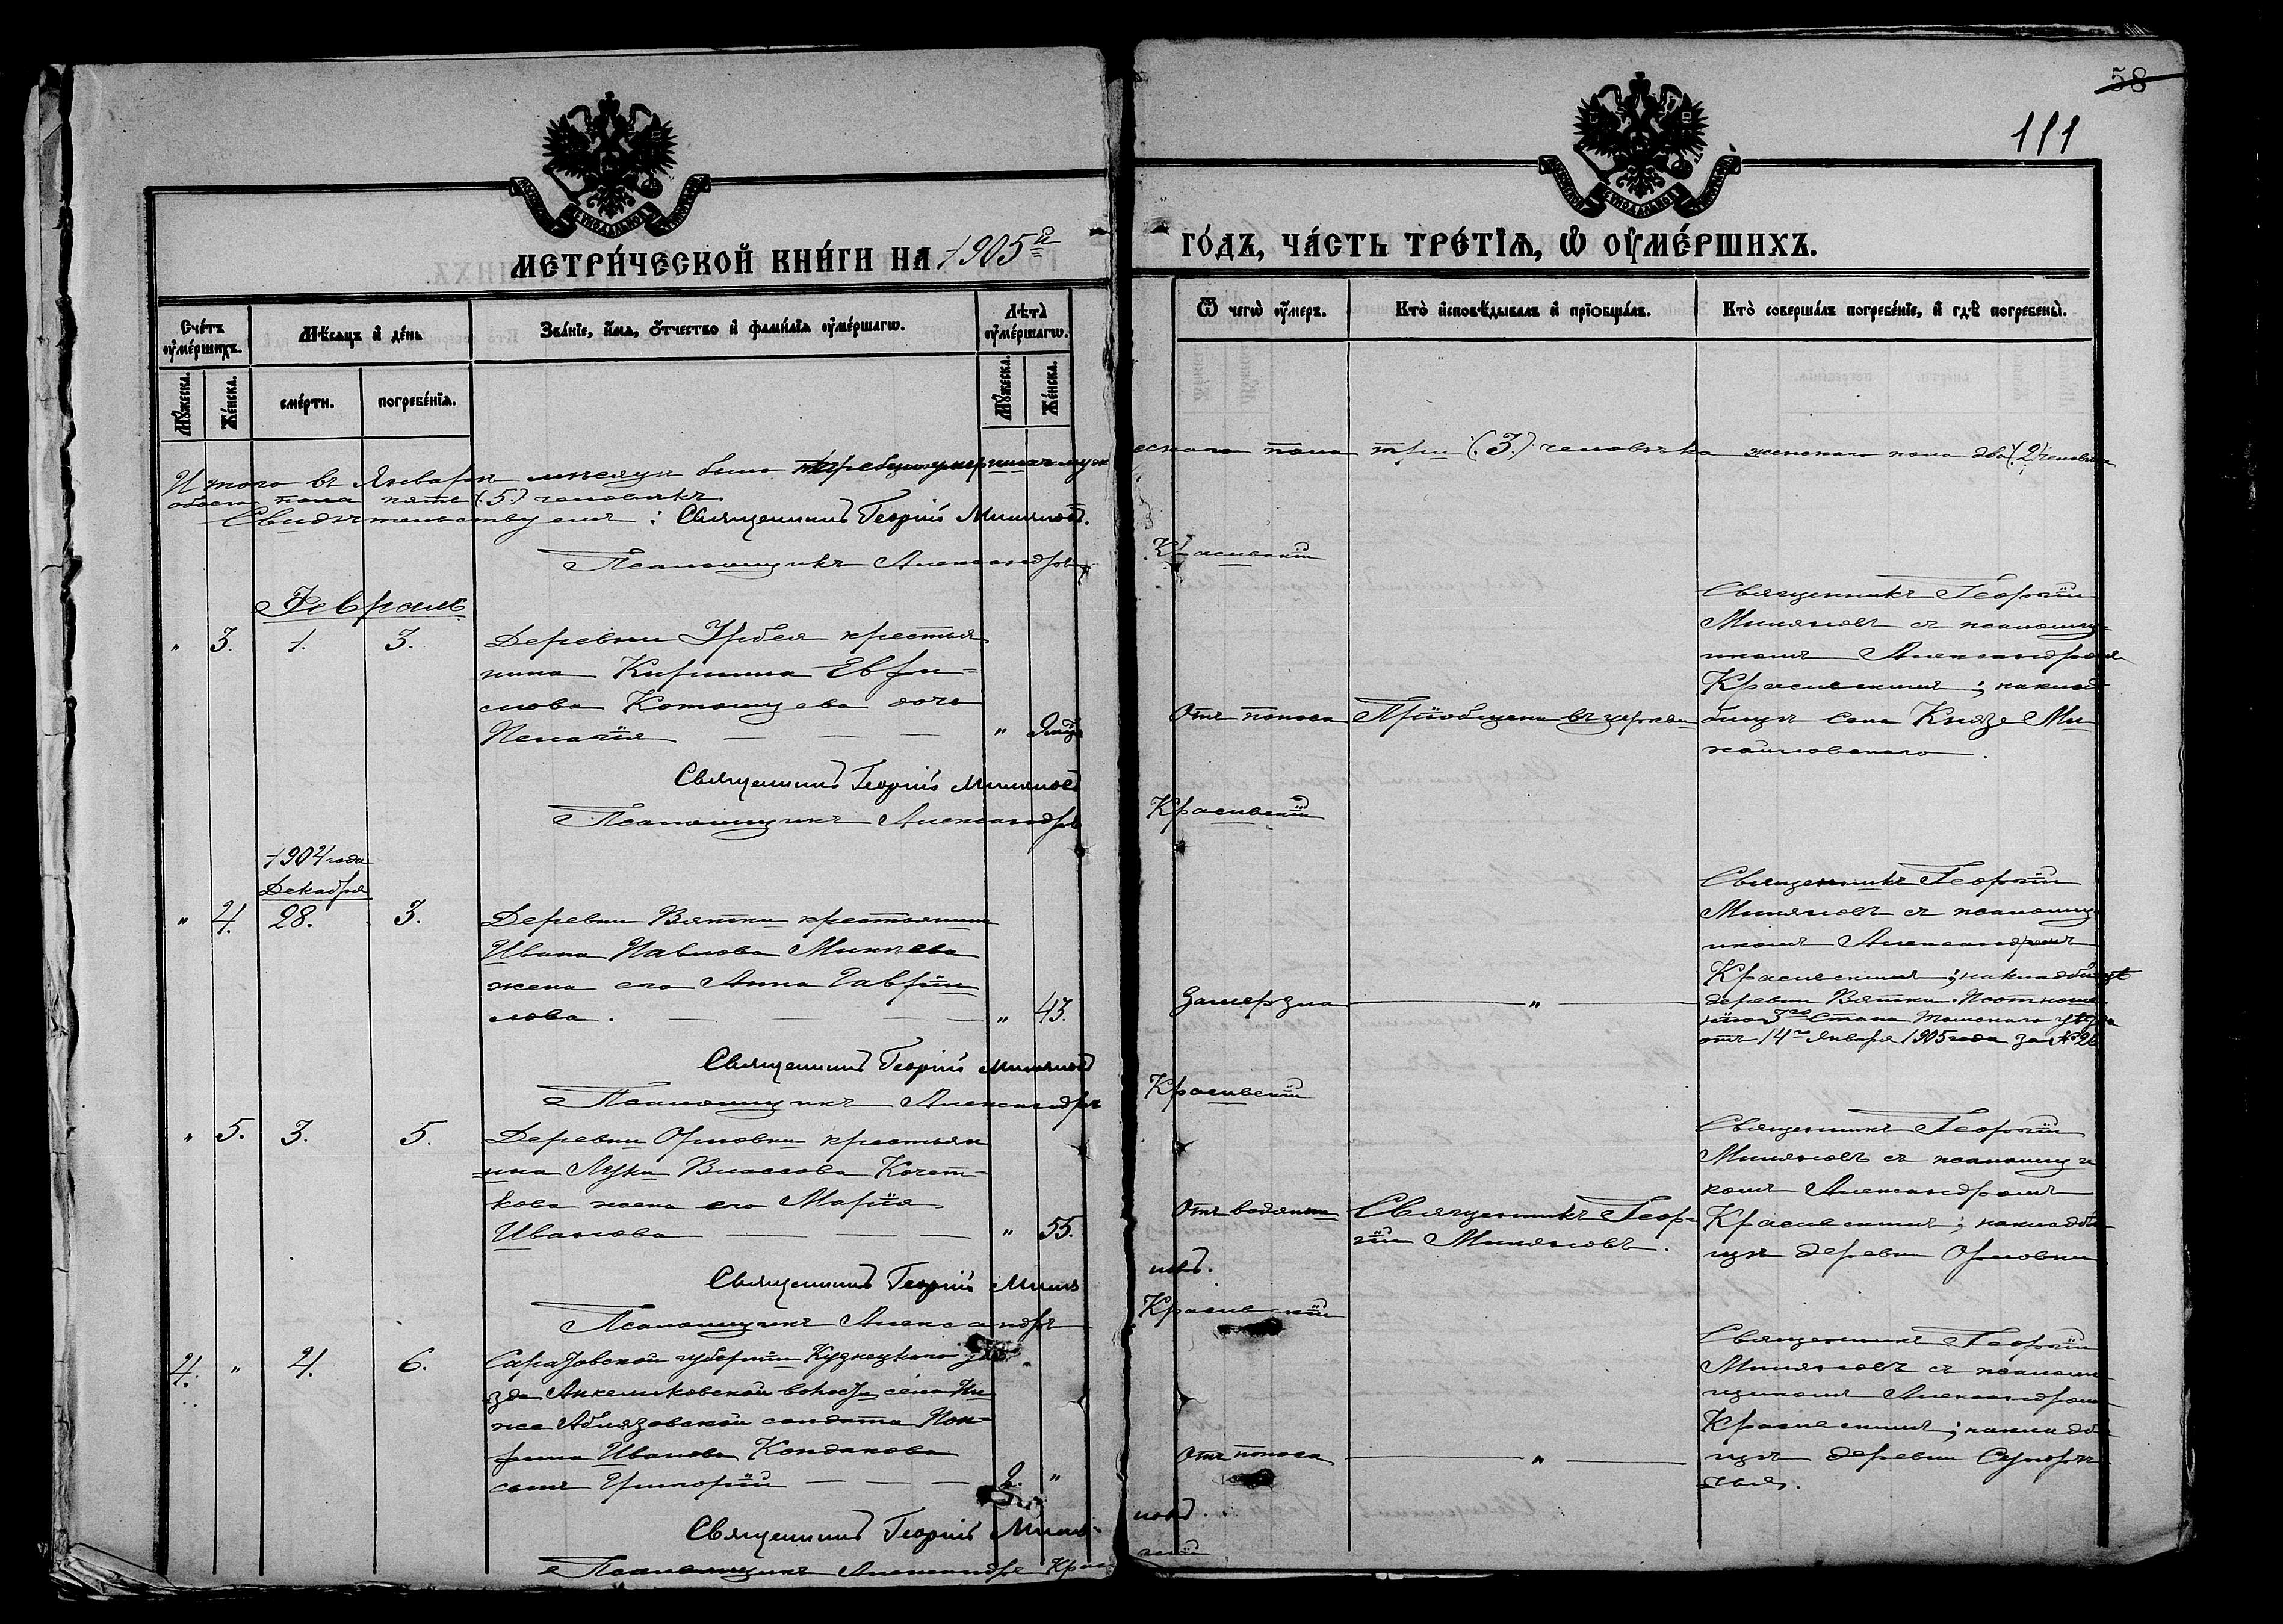 58
111
МЕТРИ́ЧЕСКОЙ КНИ́ГИ НА 1905й
ГО́ДЪ, ЧА́СТЬ ТРЕ́ТІѦ, Ѽ ОУМЕ́РШИХЪ.
Сче́тъ оумершихъ.
Мѣсяцъ и день
Званіе, имя, отчество и фамилія оумершагѡ.
Лѣта оумершагѡ.
Ѿ чегѡ оумеръ.
Кто исповѣдывалъ и пріобщалъ.
Кто совершалъ погребеніе, и гдѣ погребены.
Мужеска.
Женска.
смерти.
погребенія.
Мужеска.
Женска.
Итого въ Январѣ мѣсяцѣ было умершихъ муж
ескаго пола три (3) человѣка женскаго пола два (2) человѣка
обоего пола пять (5) человѣкъ.
Свидѣтельствуемъ: Священникъ Георгій Миляновъ.
Псаломщикъ Александръ Красивскій
Февраль
" 3. 1. 3.
Деревни Урбея крестья
нина Кирилла Евфи=
мова дочь
Пелагія — — — "
Отъ поноса
Пріобщена въ церкви
Священникъ Георгій
съ псаломщи
комъ Александромъ
Красивскимъ; на клад
бищѣ села Князе Ми
хайловскаго.
Священникъ Георгій
Псаломщикъ Александръ
Красивскій
1904 года
Декабря
" 4. 28. 3.
Деревни Вятки крестьянина
Ивана Павлова Михѣева
жена его Анна Гавріи
лова. — — — " 43.
Замерзла — " —
Священникъ Георгій
съ псаломщи
комъ Александромъ
Красивскимъ; на кладбищѣ
деревни Вятки. По отноше
нію 3го Стана Томскаго уѣзда
отъ 14го Января 1905 года за №26
Священникъ Георгій
Псаломщикъ Александръ
Красивскій
" 5. 3. 5.
Деревни Орловки крестьян
ина Луки Власова Кочет=
кова жена его Марія
Иванова — — — " 55.
Отъ водянки
Священникъ Геор=
гій
Священникъ Георгій
съ псаломщи
комъ Александромъ
Красивскимъ; на кладби
щѣ деревни Орловки
Священникъ Георгій
Псаломщикъ Александръ
Красивскій
4. " 4. 6.
Саратовской губерніи Кузнецкаго уѣ
зда волости села Ни
же Аблязовской солдата
Иванова Кондакова
сынъ Григорій — — — 2. "
Отъ поноса — " —
Священникъ Георгій
съ псалом
щикомъ Александромъ
Красивскимъ; на кладби
щѣ деревни
Священникъ Георгій
Псаломщикъ Александръ Красивскій